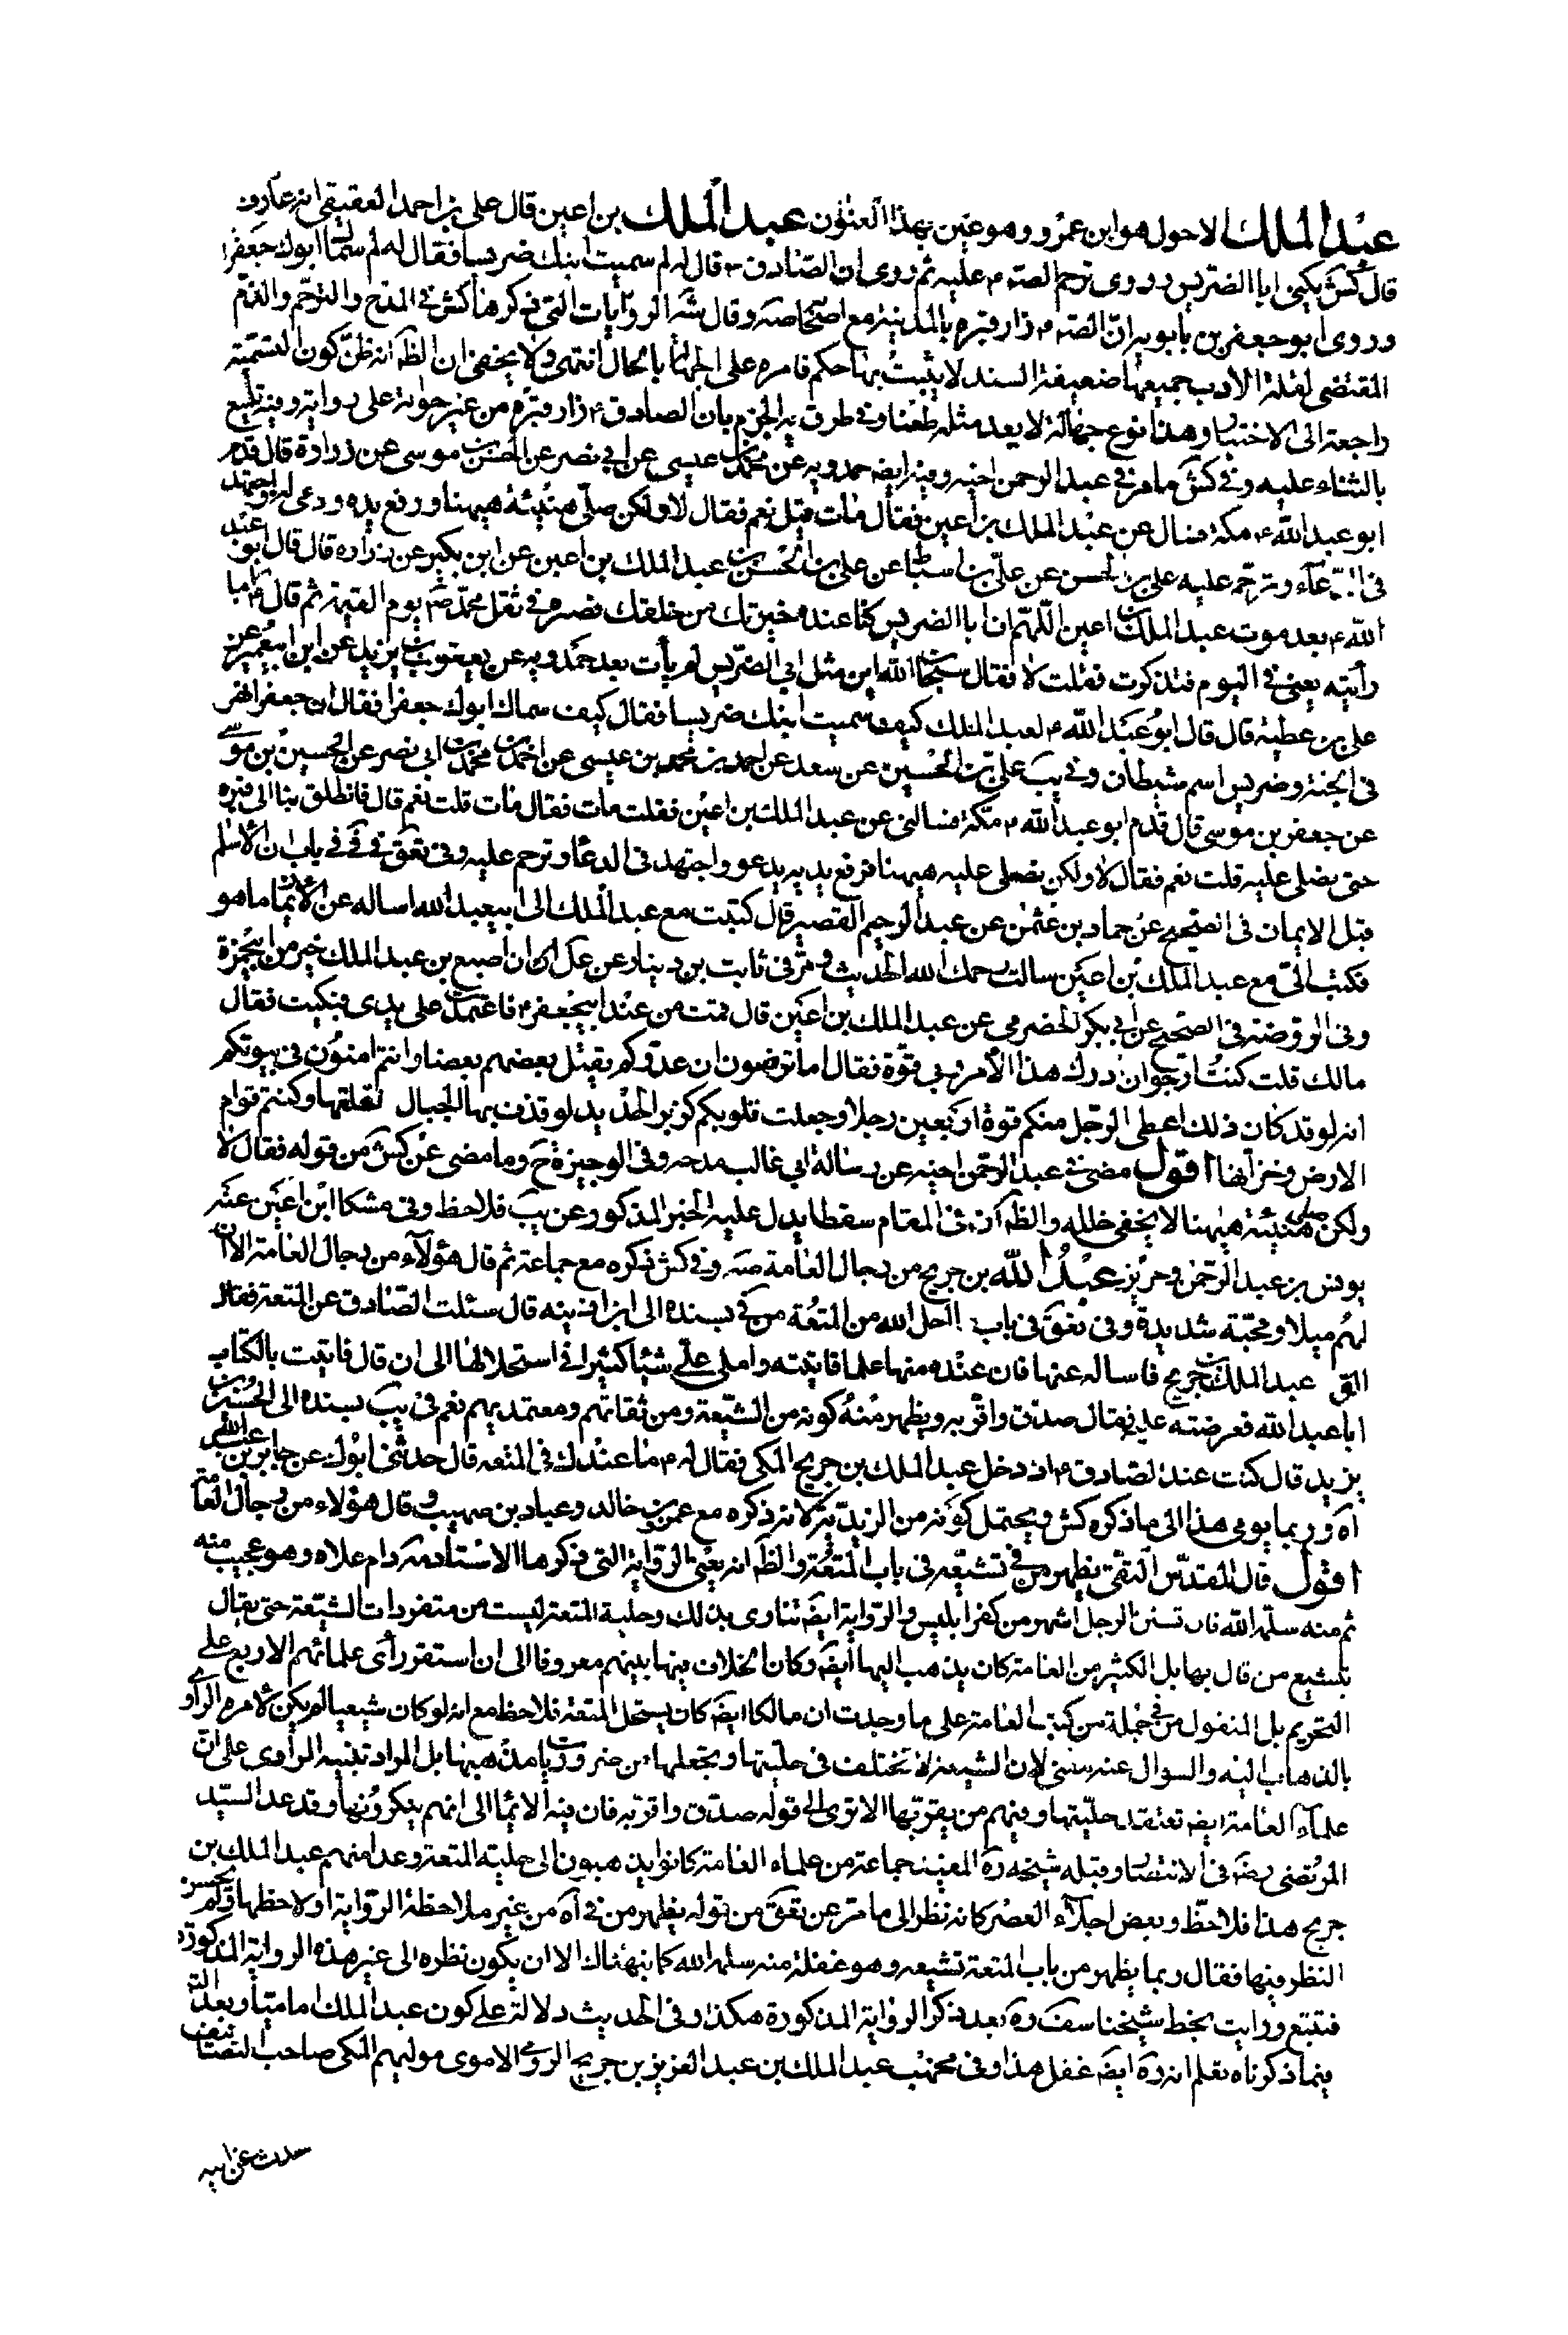 عبد الملك الاحول هو ابن عمرو وهو عين بهذا العنوان عبد الملك بن اعين قال على بن احمد العقيقى انه عارف
قال كش يكنى ابا الضريس وروى ترحم الصّه عليه ثم روى ان الصّادق ع قال له لم سميت ابنك ضريسا فقال له لم سماك ابوك جعفرا
وروى ابو جعفر بن بابويه انّ الصّه ع زار قبره بالمدينة مع اصحابه صه وقال شه الروايات التى ذكرها كش فى المدح والترحّم والذمّ
المقتضى لقلة الادب جميعها ضعيفة السند لا يثبت بها حكم فامره على الجهالة بالحال انتهى ولا يخفى ان الظّه انه ظنّ كون التسمية
راجعة الى الاختيار وهذا نوع جهالة لا يعد مثله طعنا وفى طرق يه الجزم بان الصادق ع زار قبره من غير حوالة على رواية وفيه تلميع
بالثناء عليه وفى كش ما مر فى عبد الرحمن اخيه وفيه ايضه حمدويه عن محمد بن عيسى عن ابى نصر عن الحسن بن موسى عن زرارة قال قدم
ابو عبد الله ع مكة فسال عن عبد الملك بن اعين فقال مات قيل نعم فقال لا ولكن صلى هنيئة هيهنا ورفع يديه ودعى له واجتهد
فى الدّعاء وترحّم عليه على بن الحسن عن علىّ بن اسباط عن على بن الحسن بن عبد الملك بن اعين عن ابن بكير عن زراره قال قال ابو عبد
الله ع بعد موت عبد الملك بن اعين اللّهم ان ابا الضريس كنا عنده خيرتك من خلقك فصيره فى ثقل محمّد صّه يوم القيمة ثم قال ع اما
رأيته يعنى فى النوم فتذكرت فقلت لا فقال سبحان الله اين مثل ابى الضّريس لم يأت بعد حمدويه عن يعقوب بن يزيد عن ابن ابى عمير عن
على بن عطيّة قال قال ابو عبد الله ع لعبد الملك كيف سميت ابنك ضريسا فقال كيف سماك ابوك جعفرا فقال ان جعفرا نهر
فى الجنة وضريس اسم شيطان وفى يب على بن الحسين عن سعد عن احمد بن محمد بن عيسى عن احمد بن محمد بن ابى نصر عن الحسين بن موسى
عن جعفر بن موسى قال قدم ابو عبد الله ع مكّة فسالنى عن عبد الملك بن اعين فقلت مات فقال مات قلت نعم قال فانطلق بنا الى قبره
حتى نصلى عليه قلت نعم فقال لا ولكن نصلى عليه هيهنا فرفع يديه يدعو واجتهد فى الدعاء وترحم عليه وفى تعق فى باب ان الاسلم
قبل الايمان فى الصّحيح عن حماد بن عثمن عن عبد الرحيم القصير قال كتبت مع عبد الملك الى ابيعبد الله اساله عن الايمان ما هو
فكتب الىّ مع عبد الملك بن اعين سالت رحمك الله الحديث ومرّ فى ثابت بن دينار عن على ان اصبع بن عبد الملك خير من ابيحمزة
وفى الروضة فى الصّحيح عن ابى بكر الحضرمى عن عبد الملك بن اعين قال قمت من عند ابيجعفر ع فاعتمدت على يدى فبكيت فقال
مالك قلت كنت ارجو ان ادرك هذا الأمر وبى قوّة فقال اما ترضون ان عدوّكم يقتل بعضهم بعضا وانتم امنون فى بيوتكم
انه لو قد كان ذلك اعطى الرّجل منكم قوة اربعين رجلا وجعلت قلوبكم كزبر الحديد لو قذف بها الجبال لقلقتها وكنتم قوام
الارض وخزانها اقول مضى فى عبد الرحمن اخيه عن رسالة ابى غالب مدحه وفى الوجيزة ح وما مضى عن كش من قوله فقال لا
ولكن صلى هنيئة هيهنا لا يخفى خلله والظّه ان فى المقام سقطا يدل عليه الخبر المذكور عن يب فلاحظ وفى مشكا ابن اعين عنه
يونس بن عبد الرحمن وحريز عبد الله بن جريج من رجال العامة صه وفى كش ذكره مع جماعة ثم قال هؤلاء من رجال العامة الا ان
لهم ميلا ومحبّة شديدة وفى تعق فى باب ما احل الله من المتعة من فى بسنده الى ابن اذينه قال سئلت الصّادق عن المتعة فقال
الق عبد الملك بن جريج فاساله عنها فان عنده منها علما فاتيته واملى علىّ شيئا كثيرا فى استحلالها الى ان قال فاتيت بالكتاب
ابا عبد الله فعرضته عليه فقال صدق واقر به ويظهر منه كونه من الشّيعة ومن ثقاتهم ومعتمديهم نعم فى يب بسنده الى الحسن بن
يزيد قال كنت عند الصادق ع اذ دخل عبد الملك بن جريج المكى فقال له ع ما عندك فى المتعه قال حدثنى ابوك عن جابر بن عبد الله
آه وربما يومى هذا الى ما ذكره كش ويحتمل كونه من الزيديّة لانه ذكره مع عمرو بن خالد وعباد بن صهيب وقال هؤلاء من رجال العامة
اقول قال المقدّس التقى يظهر من فى تشيّعه فى باب المتعة والظّه انه يعنى الرواية التى ذكرها الاستاد دام علاه وهو عجيب منه
ثم منه سلمه الله فان تسنن الرجل اشهر من كفر ابليس والرّواية ايضه تنادى بذلك وحلية المتعة ليست من متفردات الشيعة حتى يقال
بتشيع من قال بها بل الكثير من العامة كان يذهب اليها ايضه وكان الخلاف فيها بينهم معروفا الى ان استقر رأى علمائهم الاربع على
التحريم بل المنقول من فى جملة من كتب العامة على ما وجدت ان مالكا ايضه كان يستحل المتعة فلاحظ مع انه لو كان شيعيا لم يكن لامره الراوى
بالذهاب اليه والسوال عنه معنى لان الشيعة لا تختلف فى حلّيتها وتجعلها من ضروريات مذهبها بل المراد تنبيه الراوى على انّ
علماء العامة ايضه تعتقد حلّيتها وفيهم من يقرّ بها الا ترى الى قوله صدق واقر به فان فيه الايماء الى انهم ينكرونها وقد عد السيّد
المرتضى رضه فى الانتصار وقبله شيخه ره المفيد جماعة من علماء العامة كانوا يذهبون الى حلية المتعة وعد امنهم عبد الملك بن
جريج هذا فلاحظ وبعض اجلاء العصر كانه نظر الى ما مرّ عن تعق من قوله يظهر من فى آه من غير ملاحظة الرّواية او لاحظها ولم يحسن
النظر فيها فقال ربما يظهر من باب المتعة تشيعه وهو غفلة منه سلمه الله كما نبهناك الا ان يكون نظره الى غير هذه الرواية المذكورة
فتتبع ورايت بخط شيخنا سف ره بعد ذكر الرواية المذكورة هكذا وفى الحديث دلالة على كون عبد الملك اماميّا وبعد
فيما ذكرناه تعلم انه ره ايضه غفل هذا وفى عبد الملك بن عبد العزيز بن جريج الرومى الاموى موليهم المكى صاحب التصانيف
حدث عن ابيه